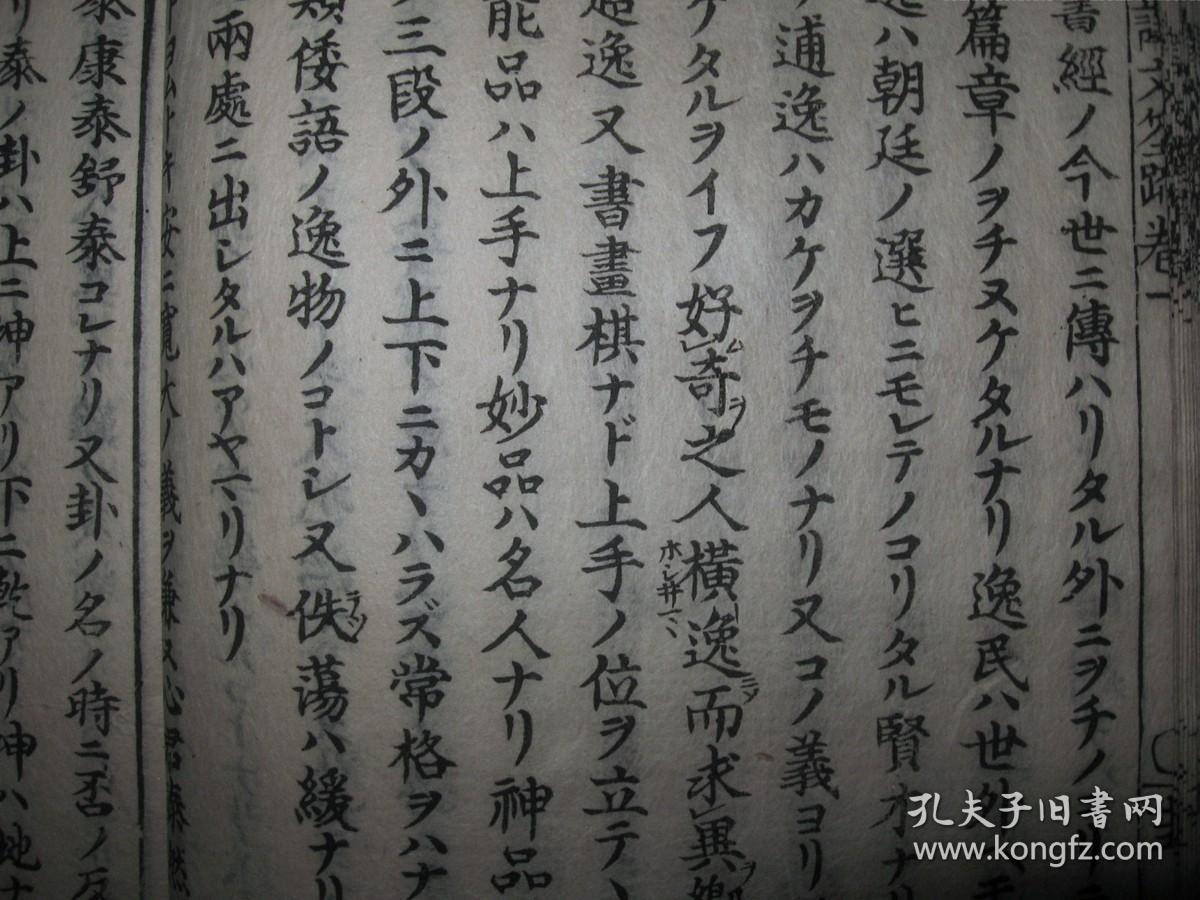 譯文筌蹄卷一
書經ノ今世ニ傳ハリタル外ニヲチノ
篇章ノヲチヌケタルナリ逸民ハ世
ハ朝廷ノ選ヒニモレテノコリタル賢
逋逸ハカケヲチモノナリ又コノ義ヨリ
ケタルヲイフ好ム奇ヲ之人橫逸ニシテ而求異
超逸又書畫棋ナド上手ノ位ヲ立テヽ
能品ハ上手ナリ妙品ハ名人ナリ神品
三段ノ外ニ上下ニカヽハラズ常格ヲハナ
類倭語ノ逸物ノコトシ又佚蕩ハ緩ナリ
兩處ニ出シタルハアヤマリナリ
泰康泰舒泰コレナリ又卦ノ名ノ時ニ否ノ反
泰ノ卦ハ上ニ坤アリ下ニ乾アリ坤ハ地
孔夫子旧书网
www.kongfz.com